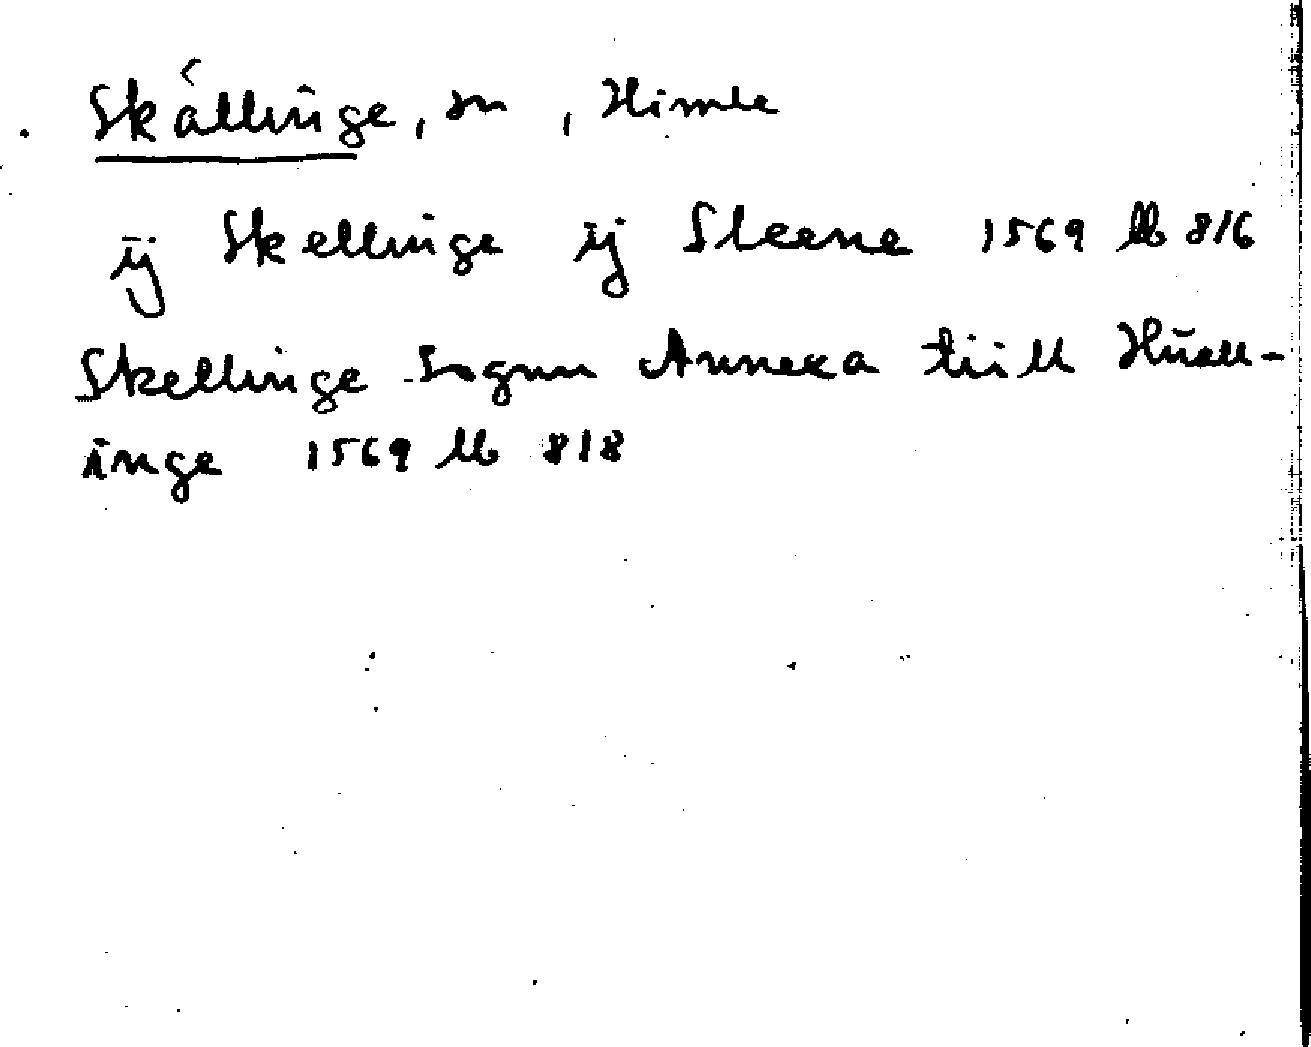 Skállinge, sn, Himle
ij Skellinge ij Sleene 1569 llb 816
Skellinge Sognn Annexa tiill Huall-
inge 1569 llb 818